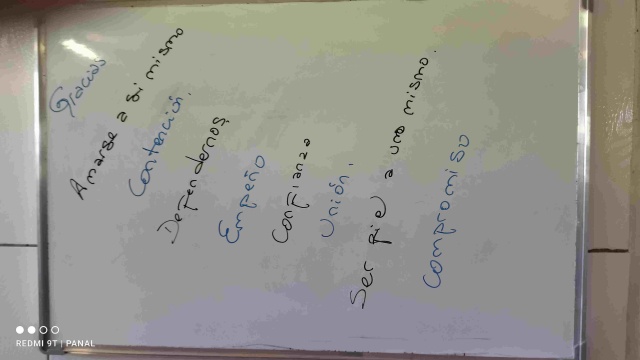 Gracias
Amarse a si mismo
Contención.
Defendernos
Empeño
Confianza
Unión.
Ser fiel a uno mismo.
Compromiso
REDMI 9T | PANAL